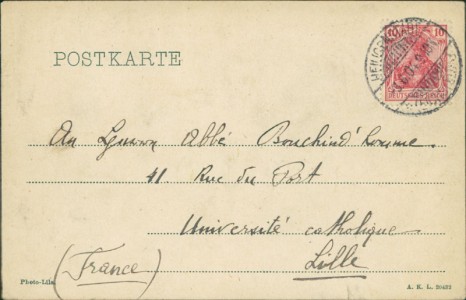 POSTKARTE
10 10
DEUTSCHES REICH
An Herrn Abbé Bouchind'homme.
41 Rue du Port
Université catholique
Lille
(France)
Photo-Lila.
A. K. L. 20422